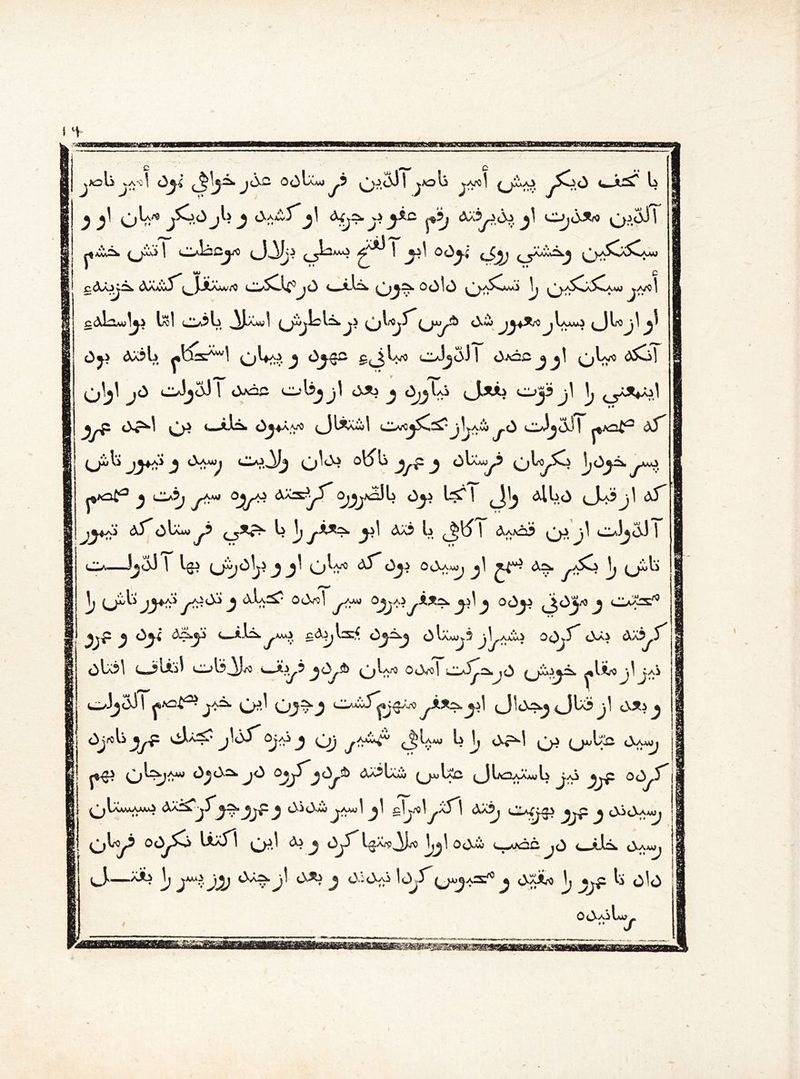 ۱۶
با تحف دیگر پیش امیر ناصر الدین فرستاده عذر خواهي نمود امیر ناصر
الدین معذرت او پذیرفته رقم عفو بر جریده کشید و بار دیگر میان او و
سبکتکین وحشتي روي نمود ابو الفتح بسطي بزلال موعظت آتش خشم
امیر سبکتکین را تسکین داده چون خلف درمملکت مستقل کشته خزاینهء
او از مال بسیار معمور شد هوس کرمان بر خاطرش استیلا یافت اما بواسطهء
آنکه میان او و عضد الدولت مبانئ عهود و پیمان استحکام یافته بود
اینمعني را از قوت بفعل نیاورد و بعد از وفات عضد الدولت در اوان
که صمصام الدولت در شیراز بحکومت اشتغال مینمود خلف بن احمد عمرو
پسر خود را بکرمان فرستاد و عمرو ناکاه بدان ولایت رسید و تیمورتاش
که از قبل دیالمه والي آنجا بود بالضروره کریخته ببردسیر رفت و صمصام
الدولت از این قضیه آکاهي یافته ابو جعفر را با جمعي فرستاد که تیمور
تاش را بکیر چه بسمع او رسیده بود که میان او و برادرش بها الدولت
محبت و مودتي بوده و ابو جعفر ببردسیر آمده بحیله و تدبیر تیمورتاش را
کرفته بند کرده بشیراز فرستاد وچون بمحاربهء پسر خلف توجه نمود و عمرو
نیز از مقام خویش درحرکت آمده میان هردو فریق ملاقات اتفاق افتاد
و بعد از قتال وجدال ابو جعفر منهزم کشت وچون این خبر بصمصام الدولت
رسید عباس بن احمد را با سپاهي شمشیر زن و نیزه کذار بجنک عمرو نامزد
کرده عمرو نیز باستقبال عباس شتافته هردو کروه در حدود سیرجان بهم
رسیدند و عمرو بهزیمت رفته اکثر امراء او اسیر شدند و عمرو چو کریخته بسیستان
رسید خلف در غضب شده اورا ملامتها کرد و به این اکتفا نکرده فرمان
داد تا عمرو را مقید و محبوس کردانیدند و بعد از چند روز پسر را بقتل
رسانیده